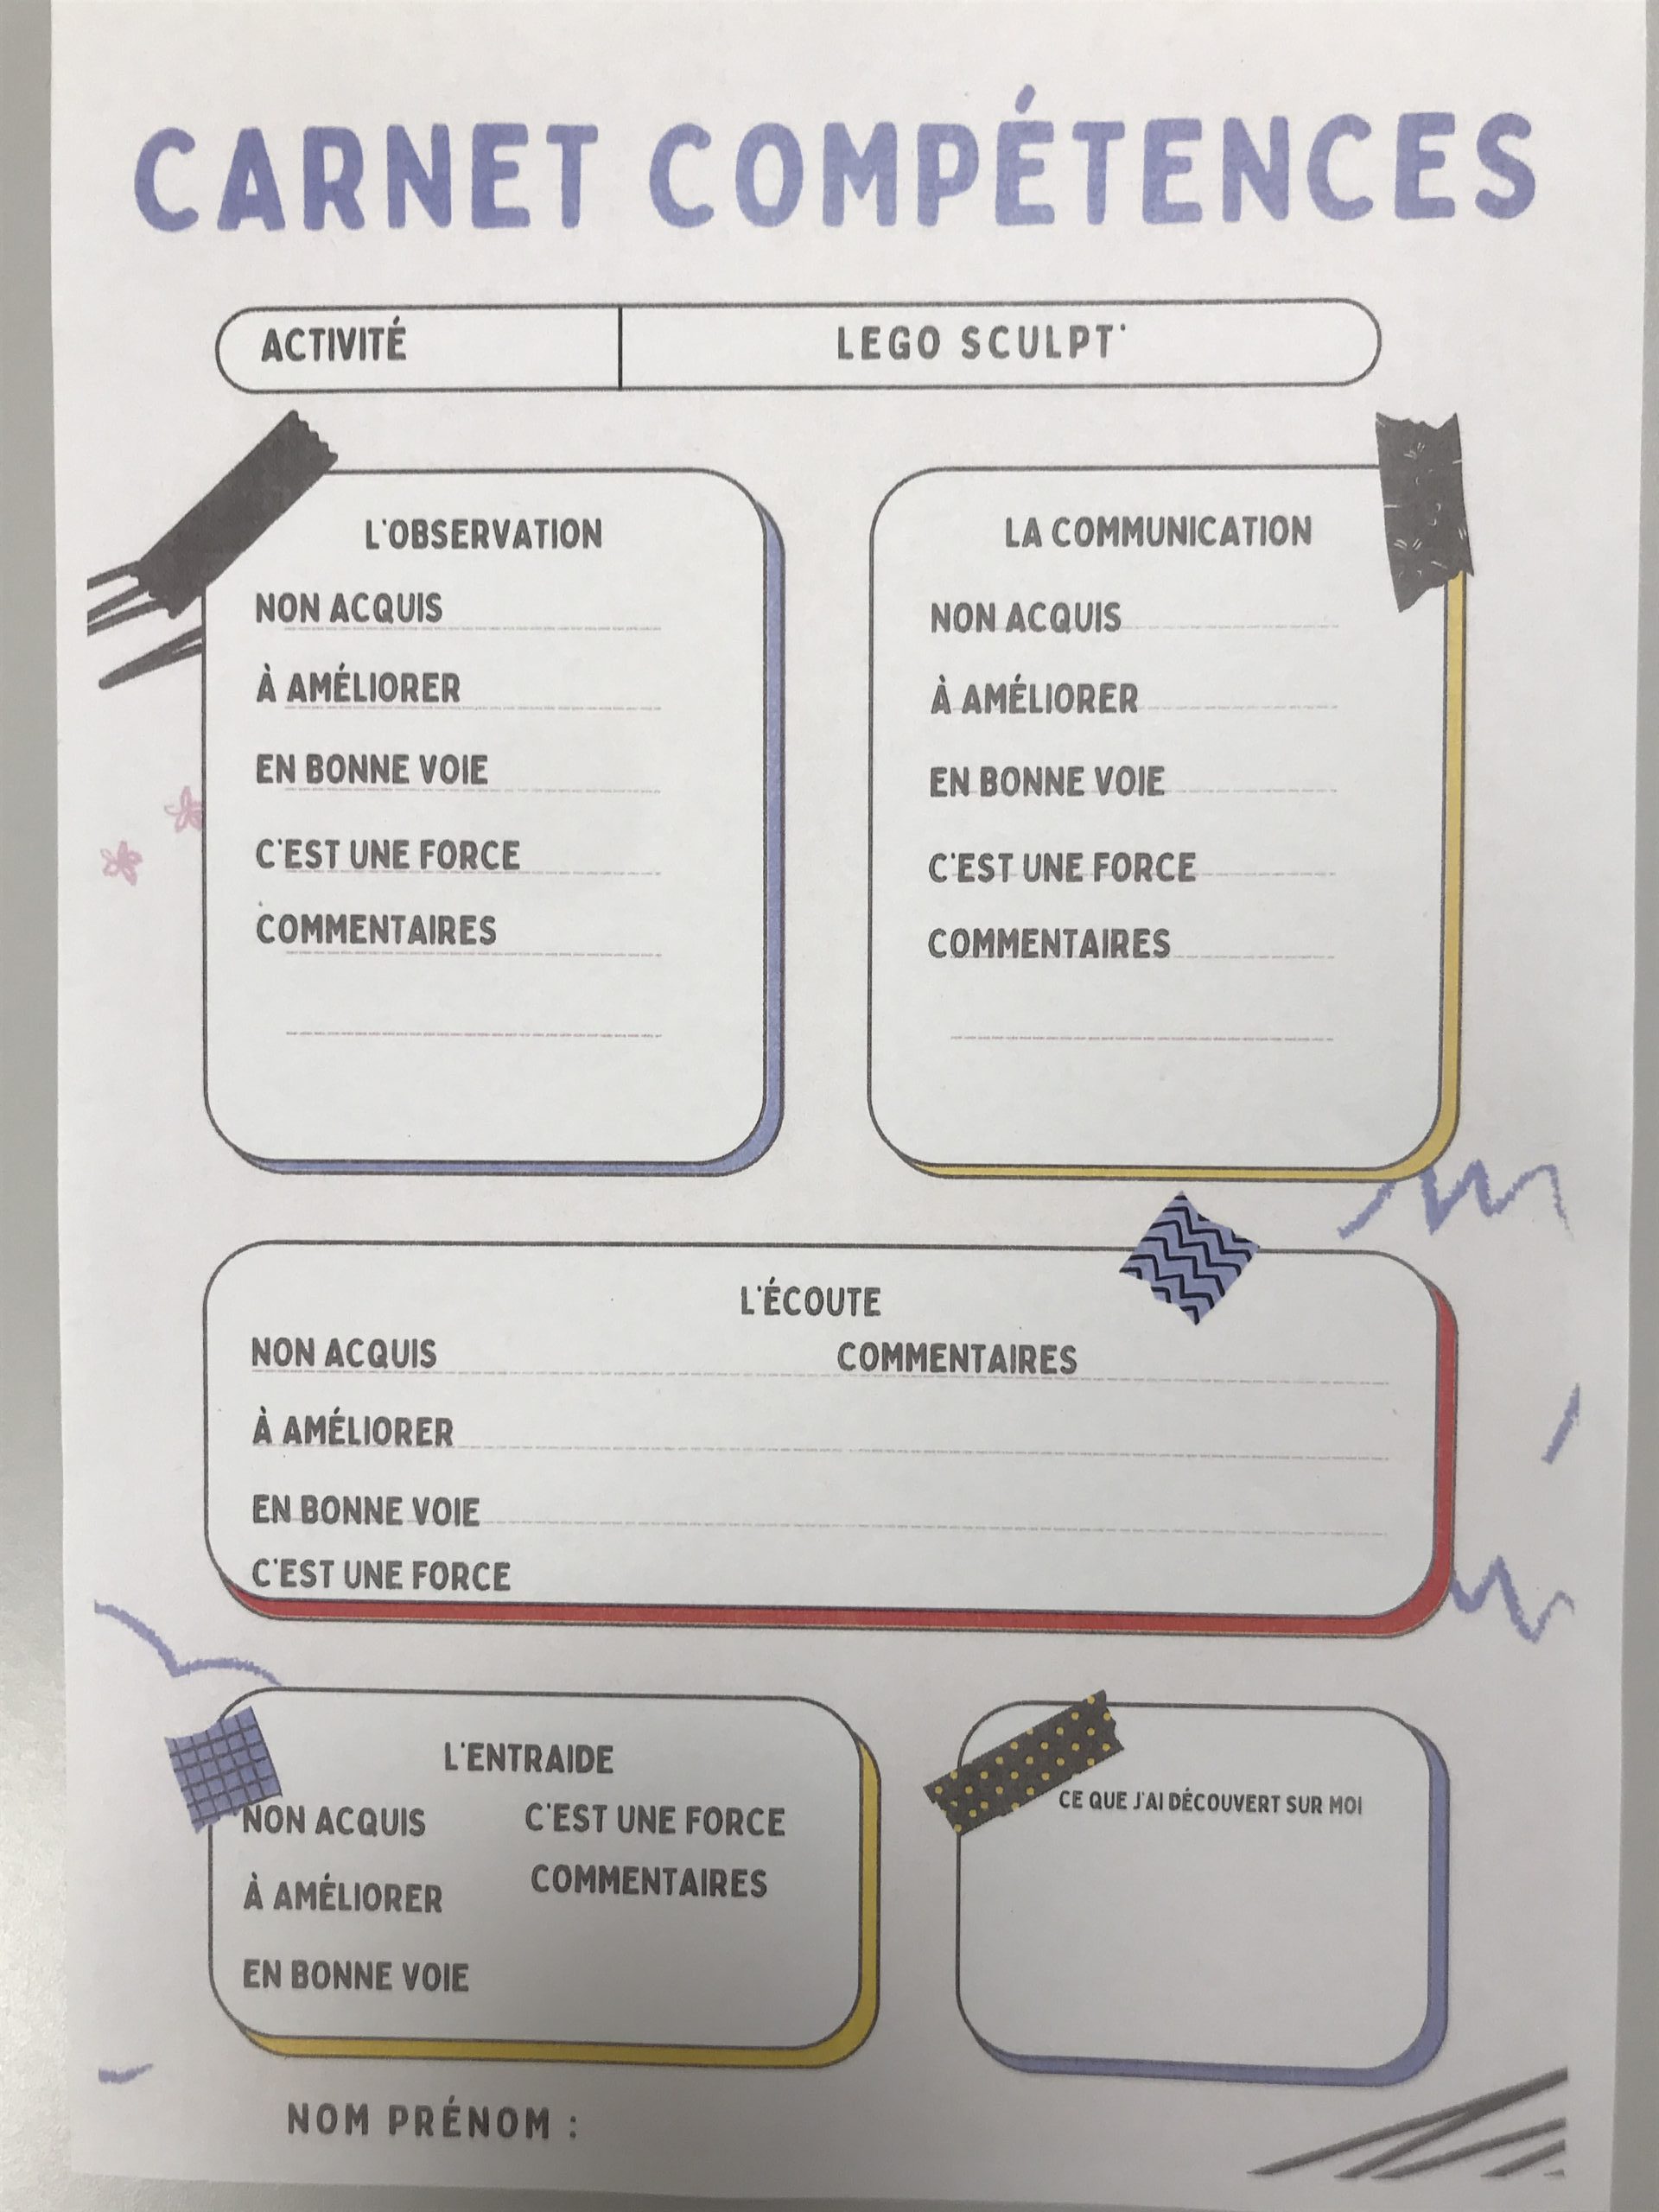 CARNET COMPÉTENCES
ACTIVITÉ LEGO SCULPT'
L'OBSERVATION
NON ACQUIS
À AMÉLIORER
EN BONNE VOIE
C'EST UNE FORCE
COMMENTAIRES
LA COMMUNICATION
NON ACQUIS
À AMÉLIORER
EN BONNE VOIE
C'EST UNE FORCE
COMMENTAIRES
L'ÉCOUTE
NON ACQUIS COMMENTAIRES
À AMÉLIORER
EN BONNE VOIE
C'EST UNE FORCE
L'ENTRAIDE
NON ACQUIS C'EST UNE FORCE
À AMÉLIORER COMMENTAIRES
EN BONNE VOIE
CE QUE J'AI DÉCOUVERT SUR MOI
NOM PRÉNOM :